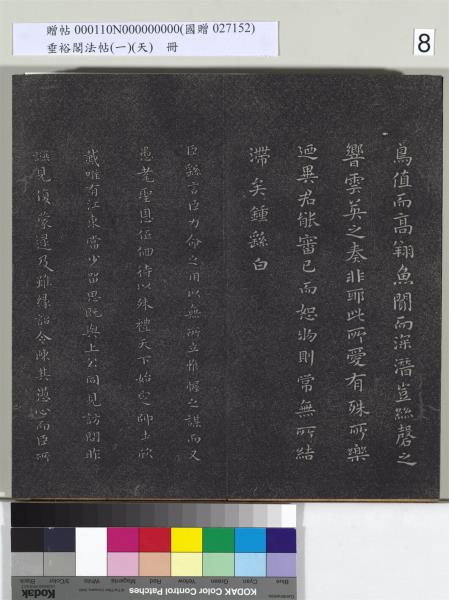 贈帖 000110N000000000(國贈 027152)
垂裕閣法帖(一)(天) 冊
8
鳥值而高翔魚聞而深潛豈絲磬之
響雲英之奏非耶此所愛有殊所樂
廼異君能審己而恕物則常無所結
滯矣鍾繇白
臣繇言臣力命之用以無所立惟幄之謀而又
愚耄聖恩低佪待以殊禮天下始定帥土欣
戴唯有江東當少留思既與上公同見訪問昨
讌見復蒙逮及雖緣詔令陳其愚心而臣所
KODAK Color Control Patches
Blue Cyan Green Yellow Red Magenta White 3/Color Black